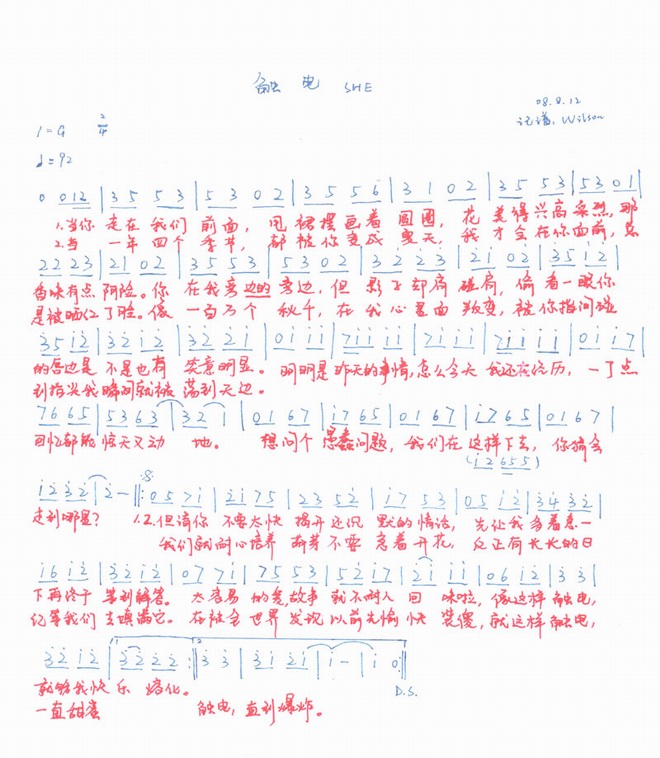 触电 SHE
08.8.12
1=G 2/4
记谱: Wilson
♩=92
0 012 | 35 53 | 53 02 | 35 56 | 31 02 | 35 53 | 53 01 |
1.当你 走在我们 前面, 甩裙摆画着 圆圈, 花 美得兴高采烈, 那
2.当 一年四个 季节, 都被你变成 夏天, 我才会在你面前, 总
22 23 | 21 02 | 35 53 | 53 02 | 32 23 | 21 02 | 35 i2 |
香味有点阴险。你 在我旁边的旁边, 但 影子却肩碰肩, 偷看一眼你
是被晒红了脸。像 一百万个 秋千, 在我心里面 叛变, 被你指间碰
35 i2 | 32 i2 | 21 | 0i ii | 7i ii | 7i 7i | 7i ii | 0i i7 |
的唇边是 不是也有 笑意明显。 明明是昨天的事情, 怎么今天我还在经历, 一了点
到指尖我瞬间就被 荡到天边。
76 65 | 53 63 | 32 i | 01 67 | i7 65 | 01 67 | i7 65 | 01 67 |
回忆都能 惊天又动 地。 想问个 愚蠢问题, 我们在 这样下去, 你猜会
(i2655)
i2 32 | 2 - ‖: 05 7i | 2i 75 | 23 52 | i7 53 | 05 i2 | 34 32 |
走到哪里? 1.2.但请你 不要太快 揭开还沉 默的情话, 先让我 多着急一
我们就耐心培养 萌芽不要 急着开花, 反正有长长的日
i6 i2 | 32 i2 | 07 7i | 75 53 | 52 i7 | 2i ii | 06 i2 | 33 |
下再终于 等到解答。 太容易的爱故事 就不耐人 回 味啦, 像这样 触电,
纪等我们 去填满它。 在被全 世界 发现以前先愉快 装傻, 就这样触电,
32 i2 | 32 22 :‖ 33 | 3i 2i | i - | i 0 :‖
D.S.
就够我快 乐 熔化。
一直甜蜜 触电, 直到爆炸。